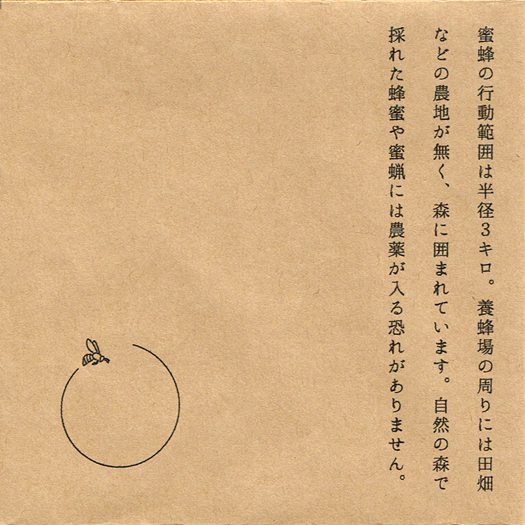 蜜蜂の行動範囲は半径３キロ。養蜂場の周りには田畑
などの農地が無く、森に囲まれています。自然の森で
採れた蜂蜜や蜜蝋には農薬が入る恐れがありません。